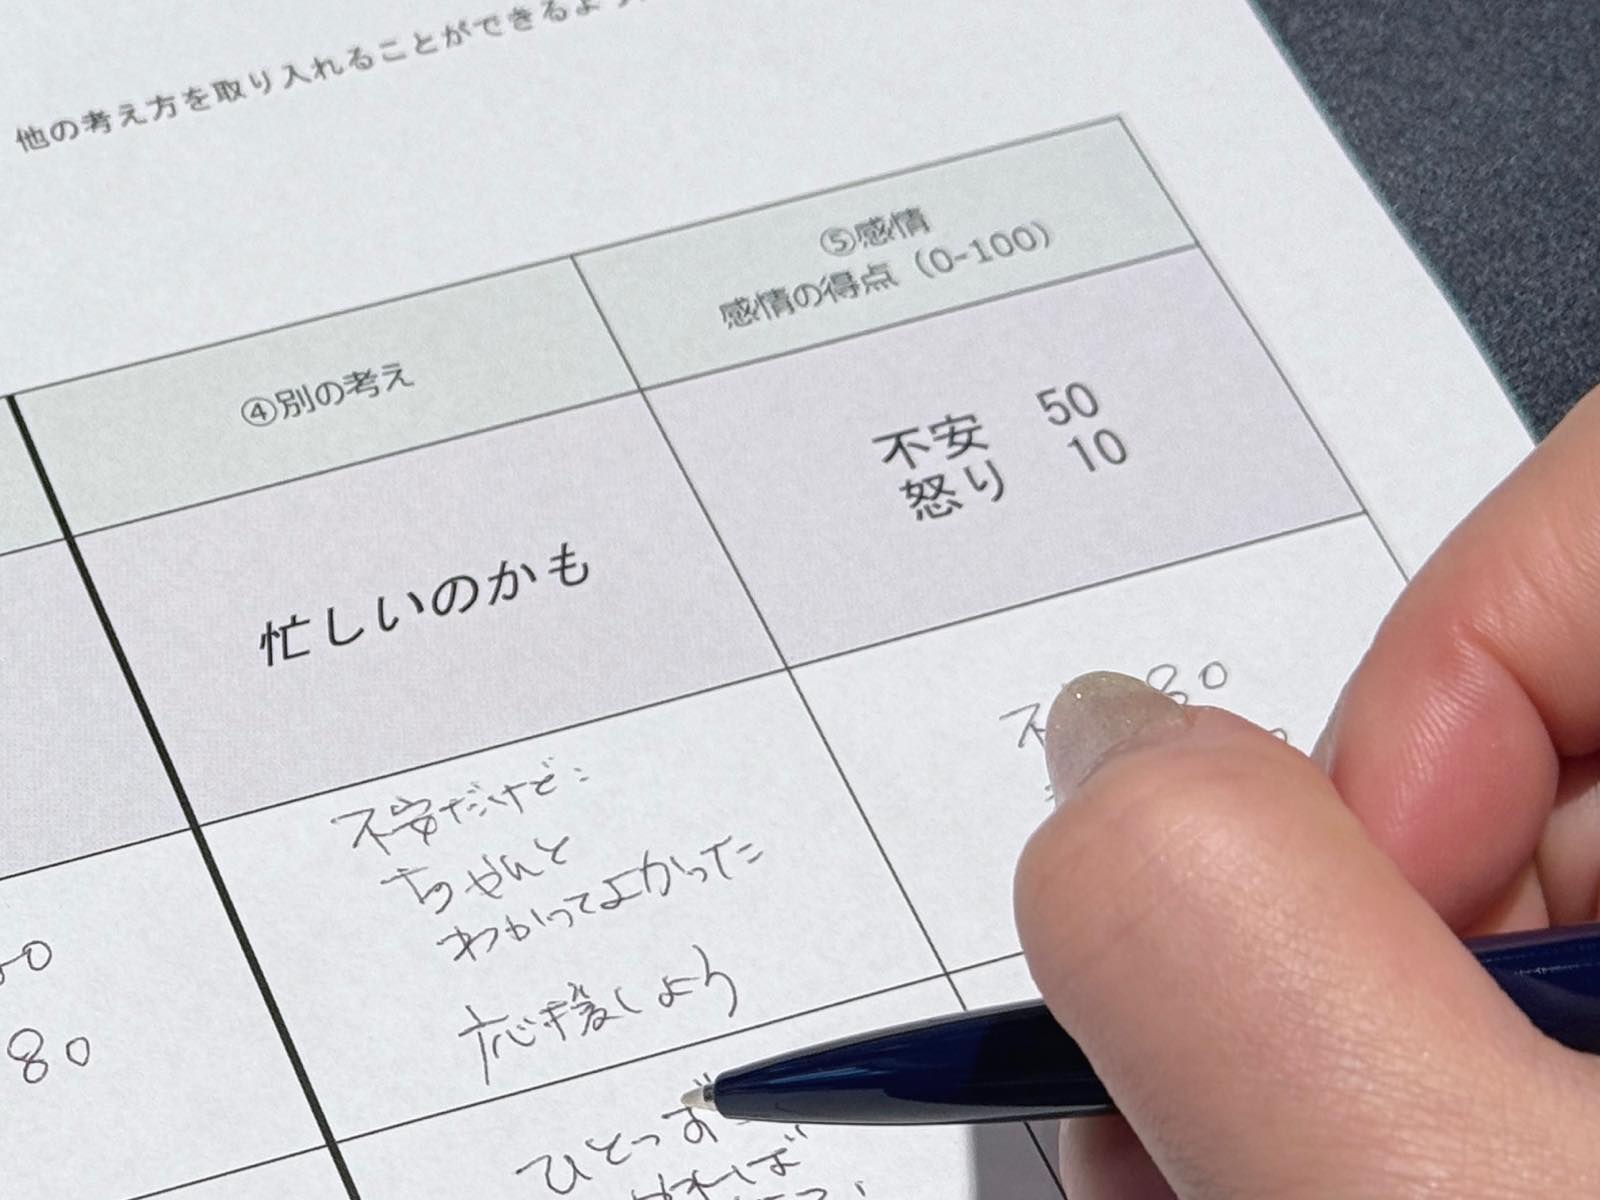 他の考え方を取り入れることができるよう
④別の考え
⑤感情
感情の得点（0-100）
忙しいのかも
不安 50
怒り 10
不安だけど:
ちゃんと
わかってよかった
応援しよう
80
80
ひとつず